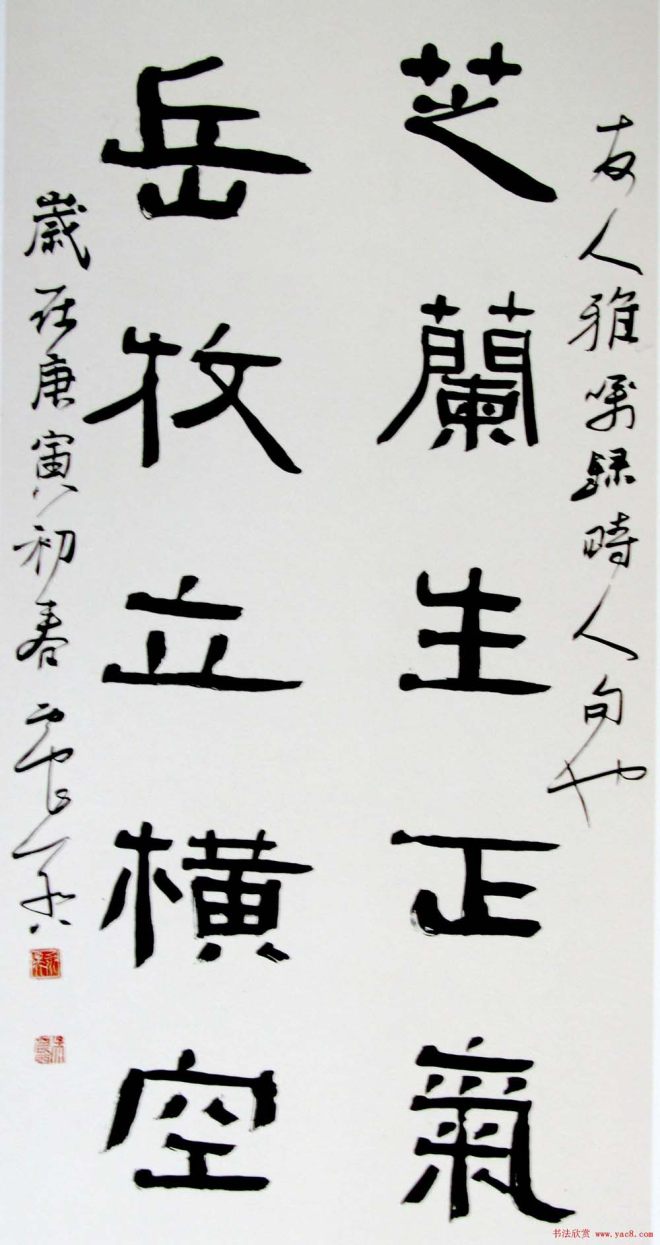 友人雅嘱録時人句也
芝蘭生正氣
岳牧立横空
歲在庚寅初春
书法欣赏 www.yac8.com